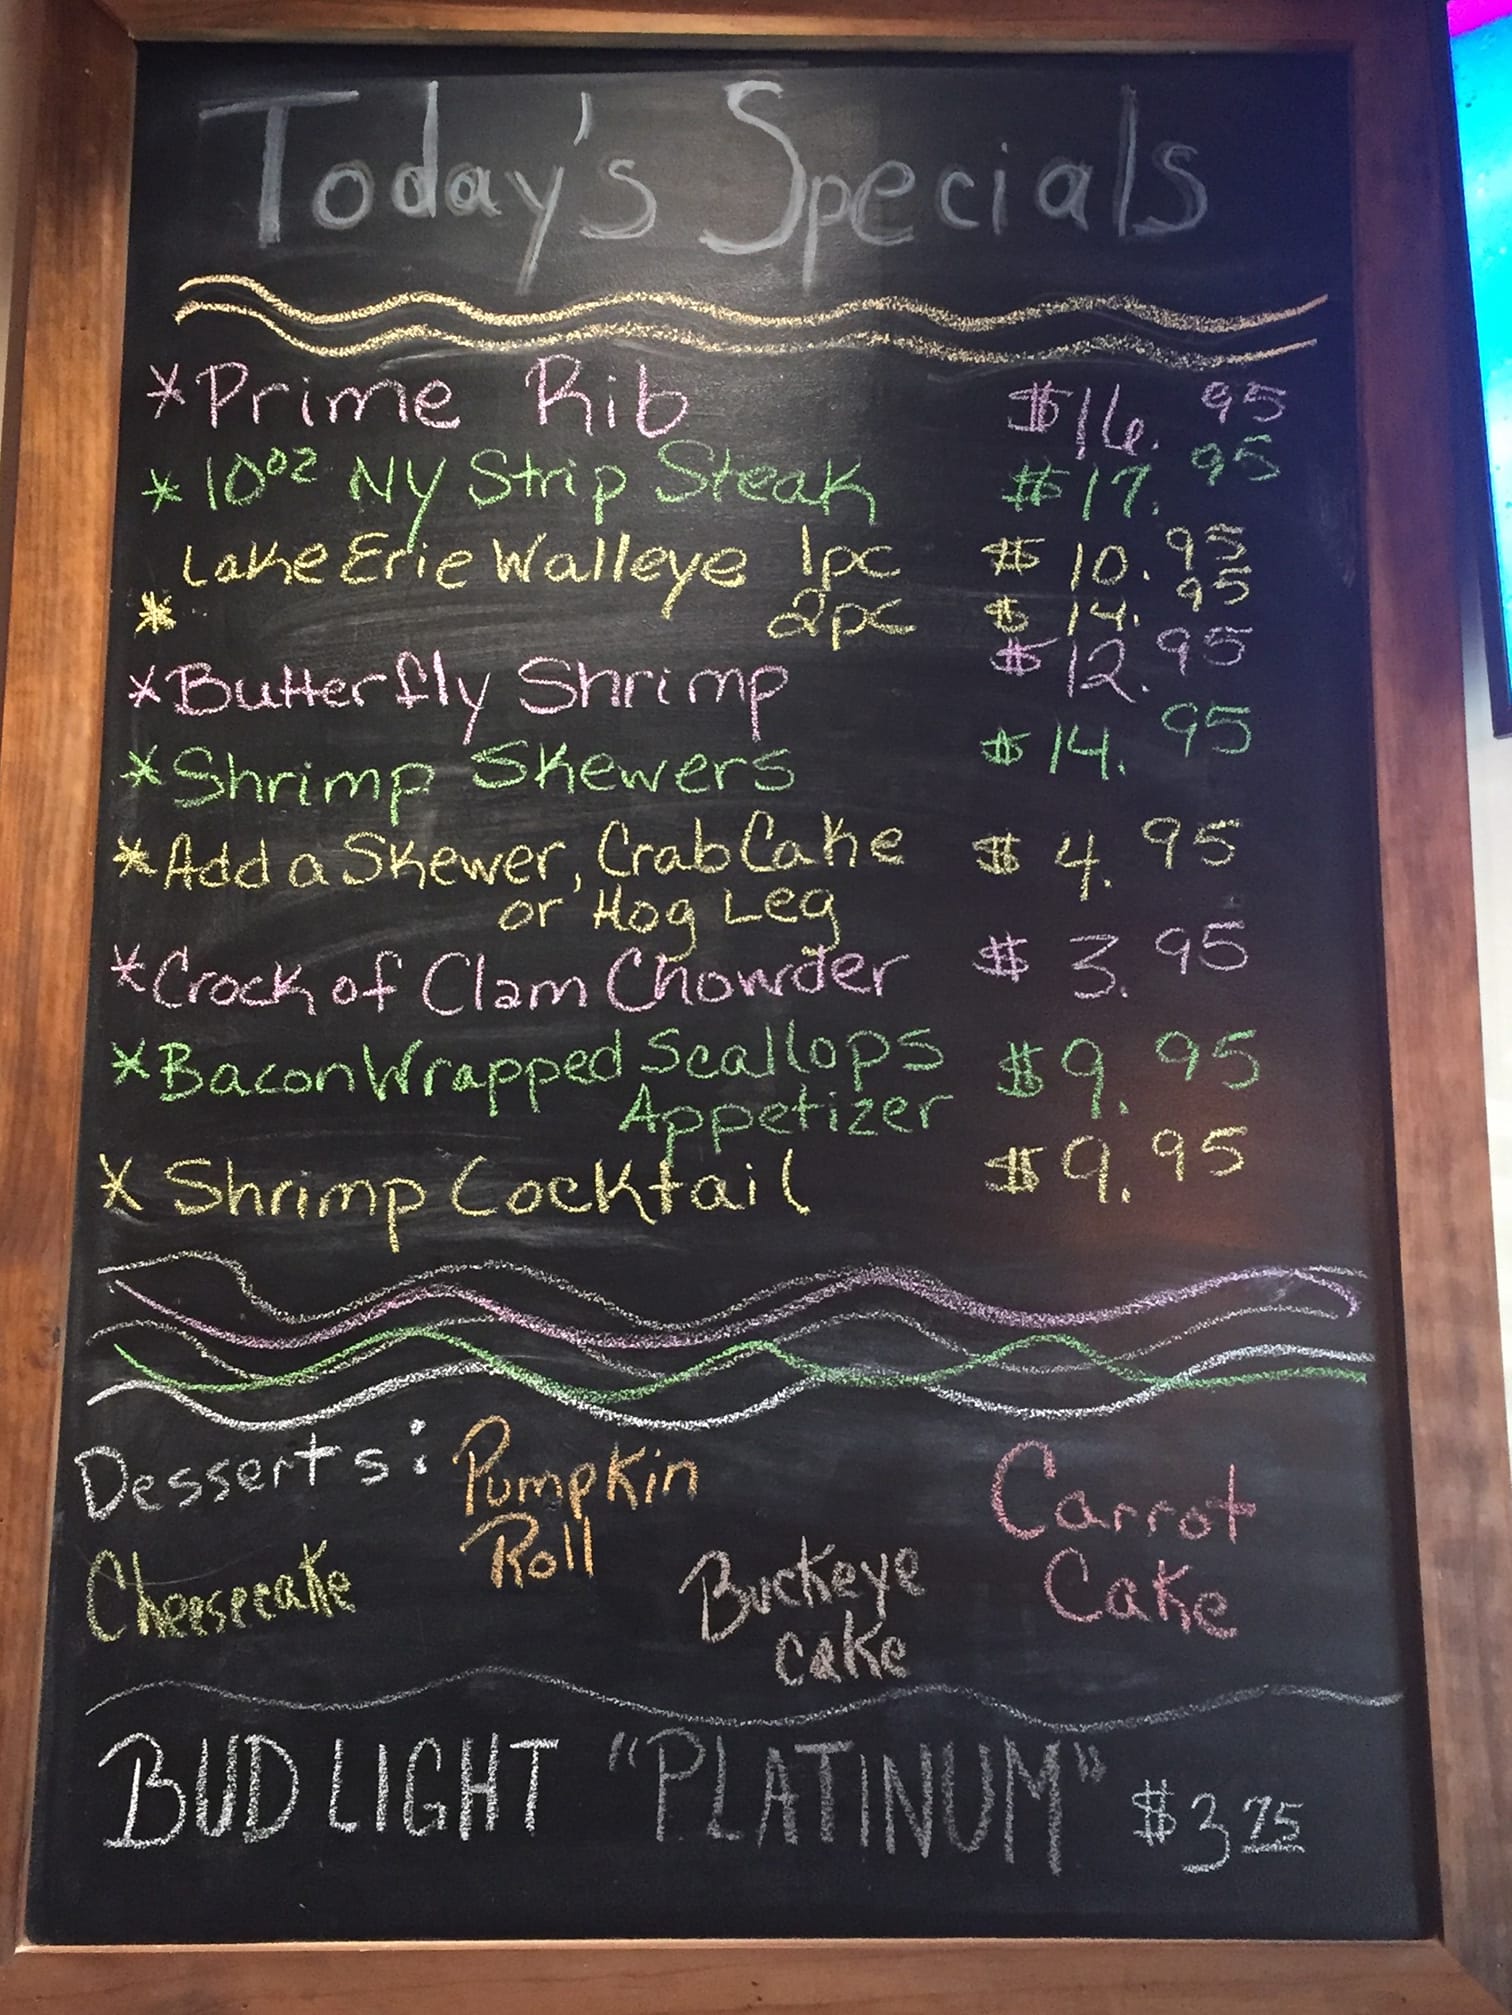 Today's Specials
*Prime Rib $16.95
*10oz NY Strip Steak $17.95
Lake Erie Walleye 1pc $10.95
* 2pc $14.95
*Butterfly Shrimp $12.95
*Shrimp Skewers $14.95
*Add a Skewer, Crab Cake $4.95
or Hog Leg
*Crock of Clam Chowder $3.95
*Bacon Wrapped Scallops $9.95
Appetizer
*Shrimp Cocktail $9.95
Desserts:
Pumpkin
Roll
Carrot
Cake
Cheesecake
Buckeye
cake
BUD LIGHT "PLATINUM" $3 75